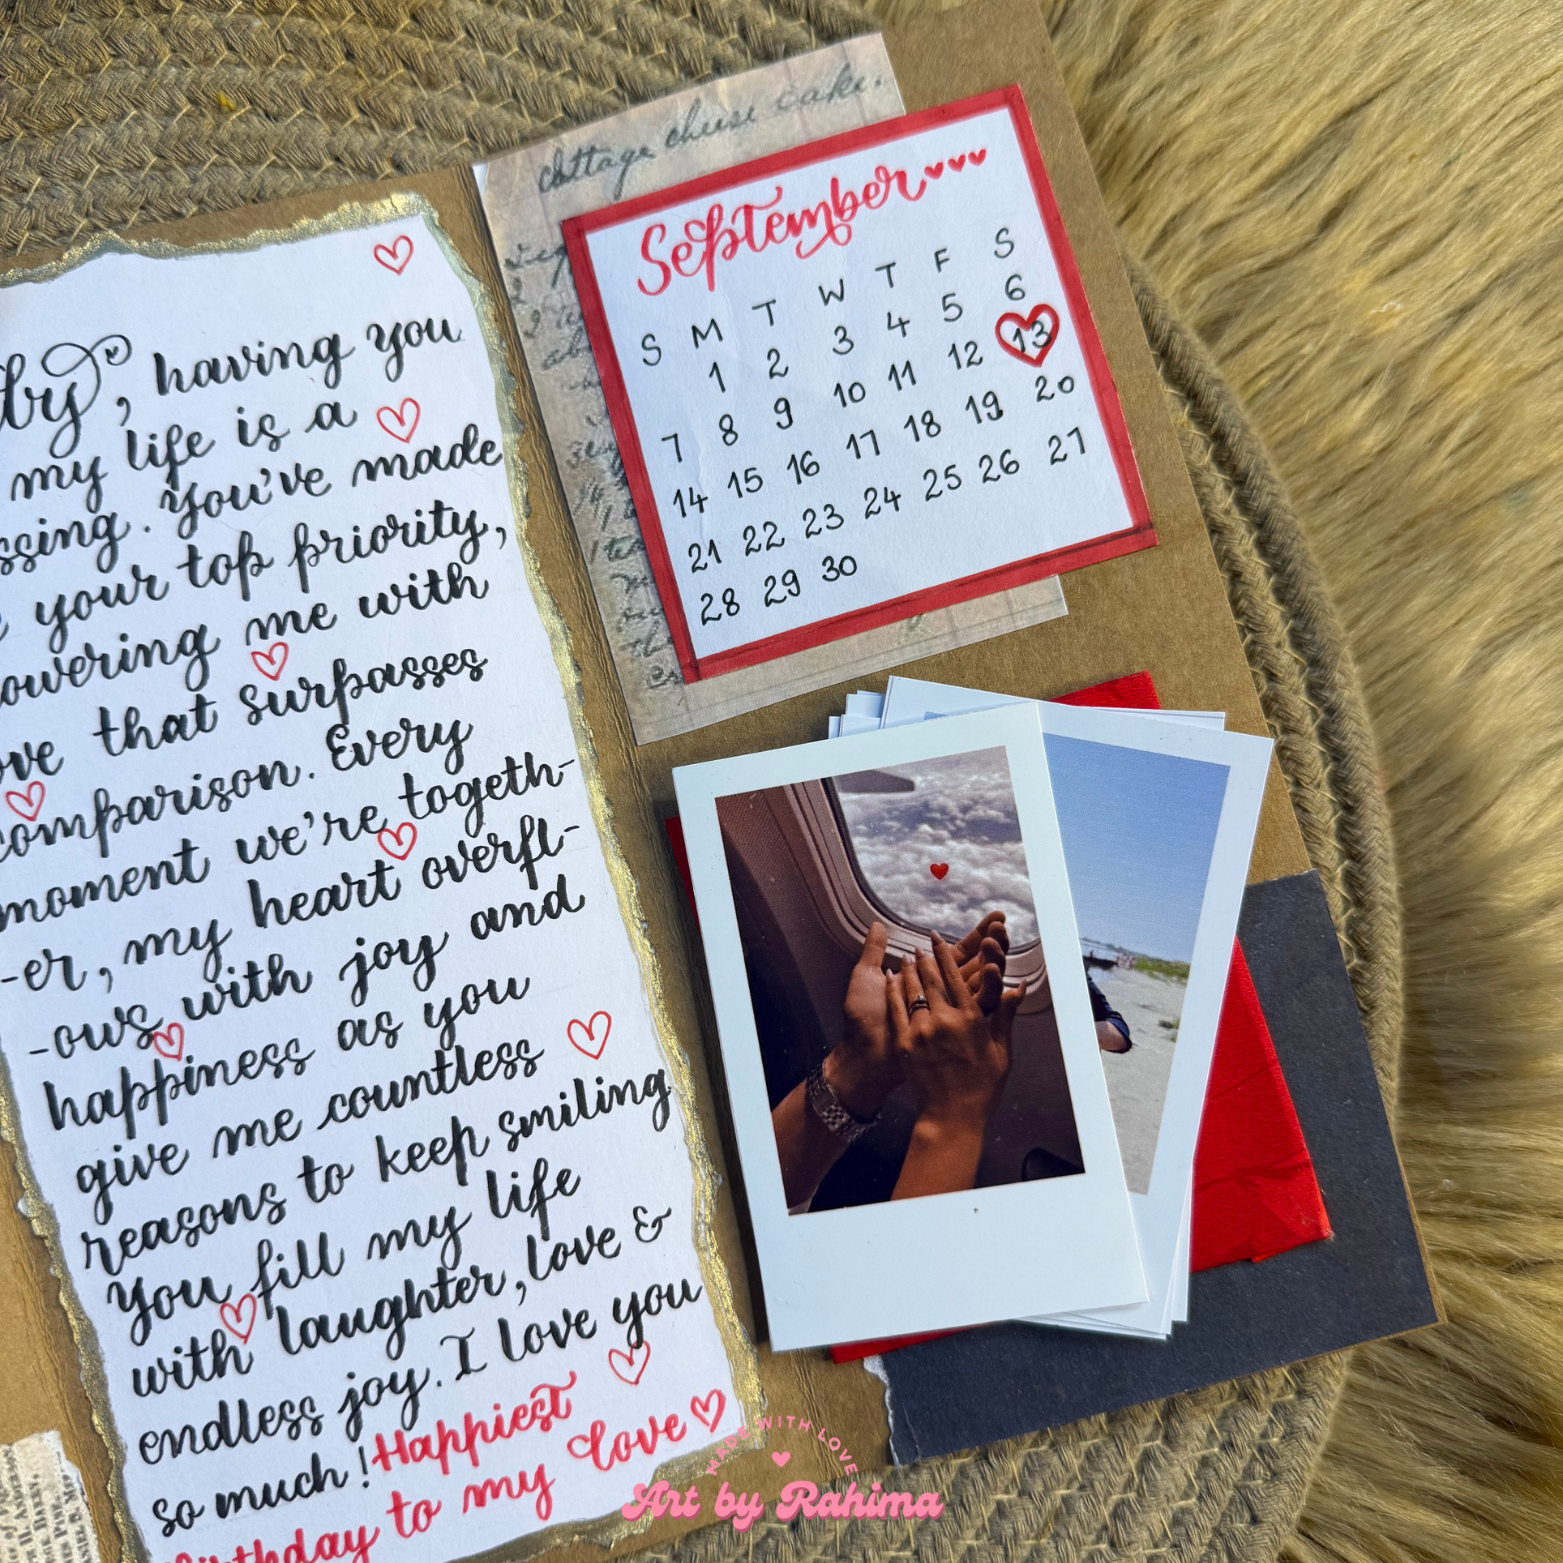 , having you
my life is a
. You've made
your top priority,
me with
that surpasses
comparison. Every
moment we're togeth-
-er, my heart overfl-
-ows with joy and
happiness as you
give me countless
reasons to keep smiling
You fill my life
with laughter, love &
endless joy. I love you
so much! Happiest
Birthday to my Love
cottage cheese cake.
September
S M T W T F S
1 2 3 4 5 6
7 8 9 10 11 12 13
14 15 16 17 18 19 20
21 22 23 24 25 26 27
28 29 30
MADE WITH LOVE
Art by Rahima